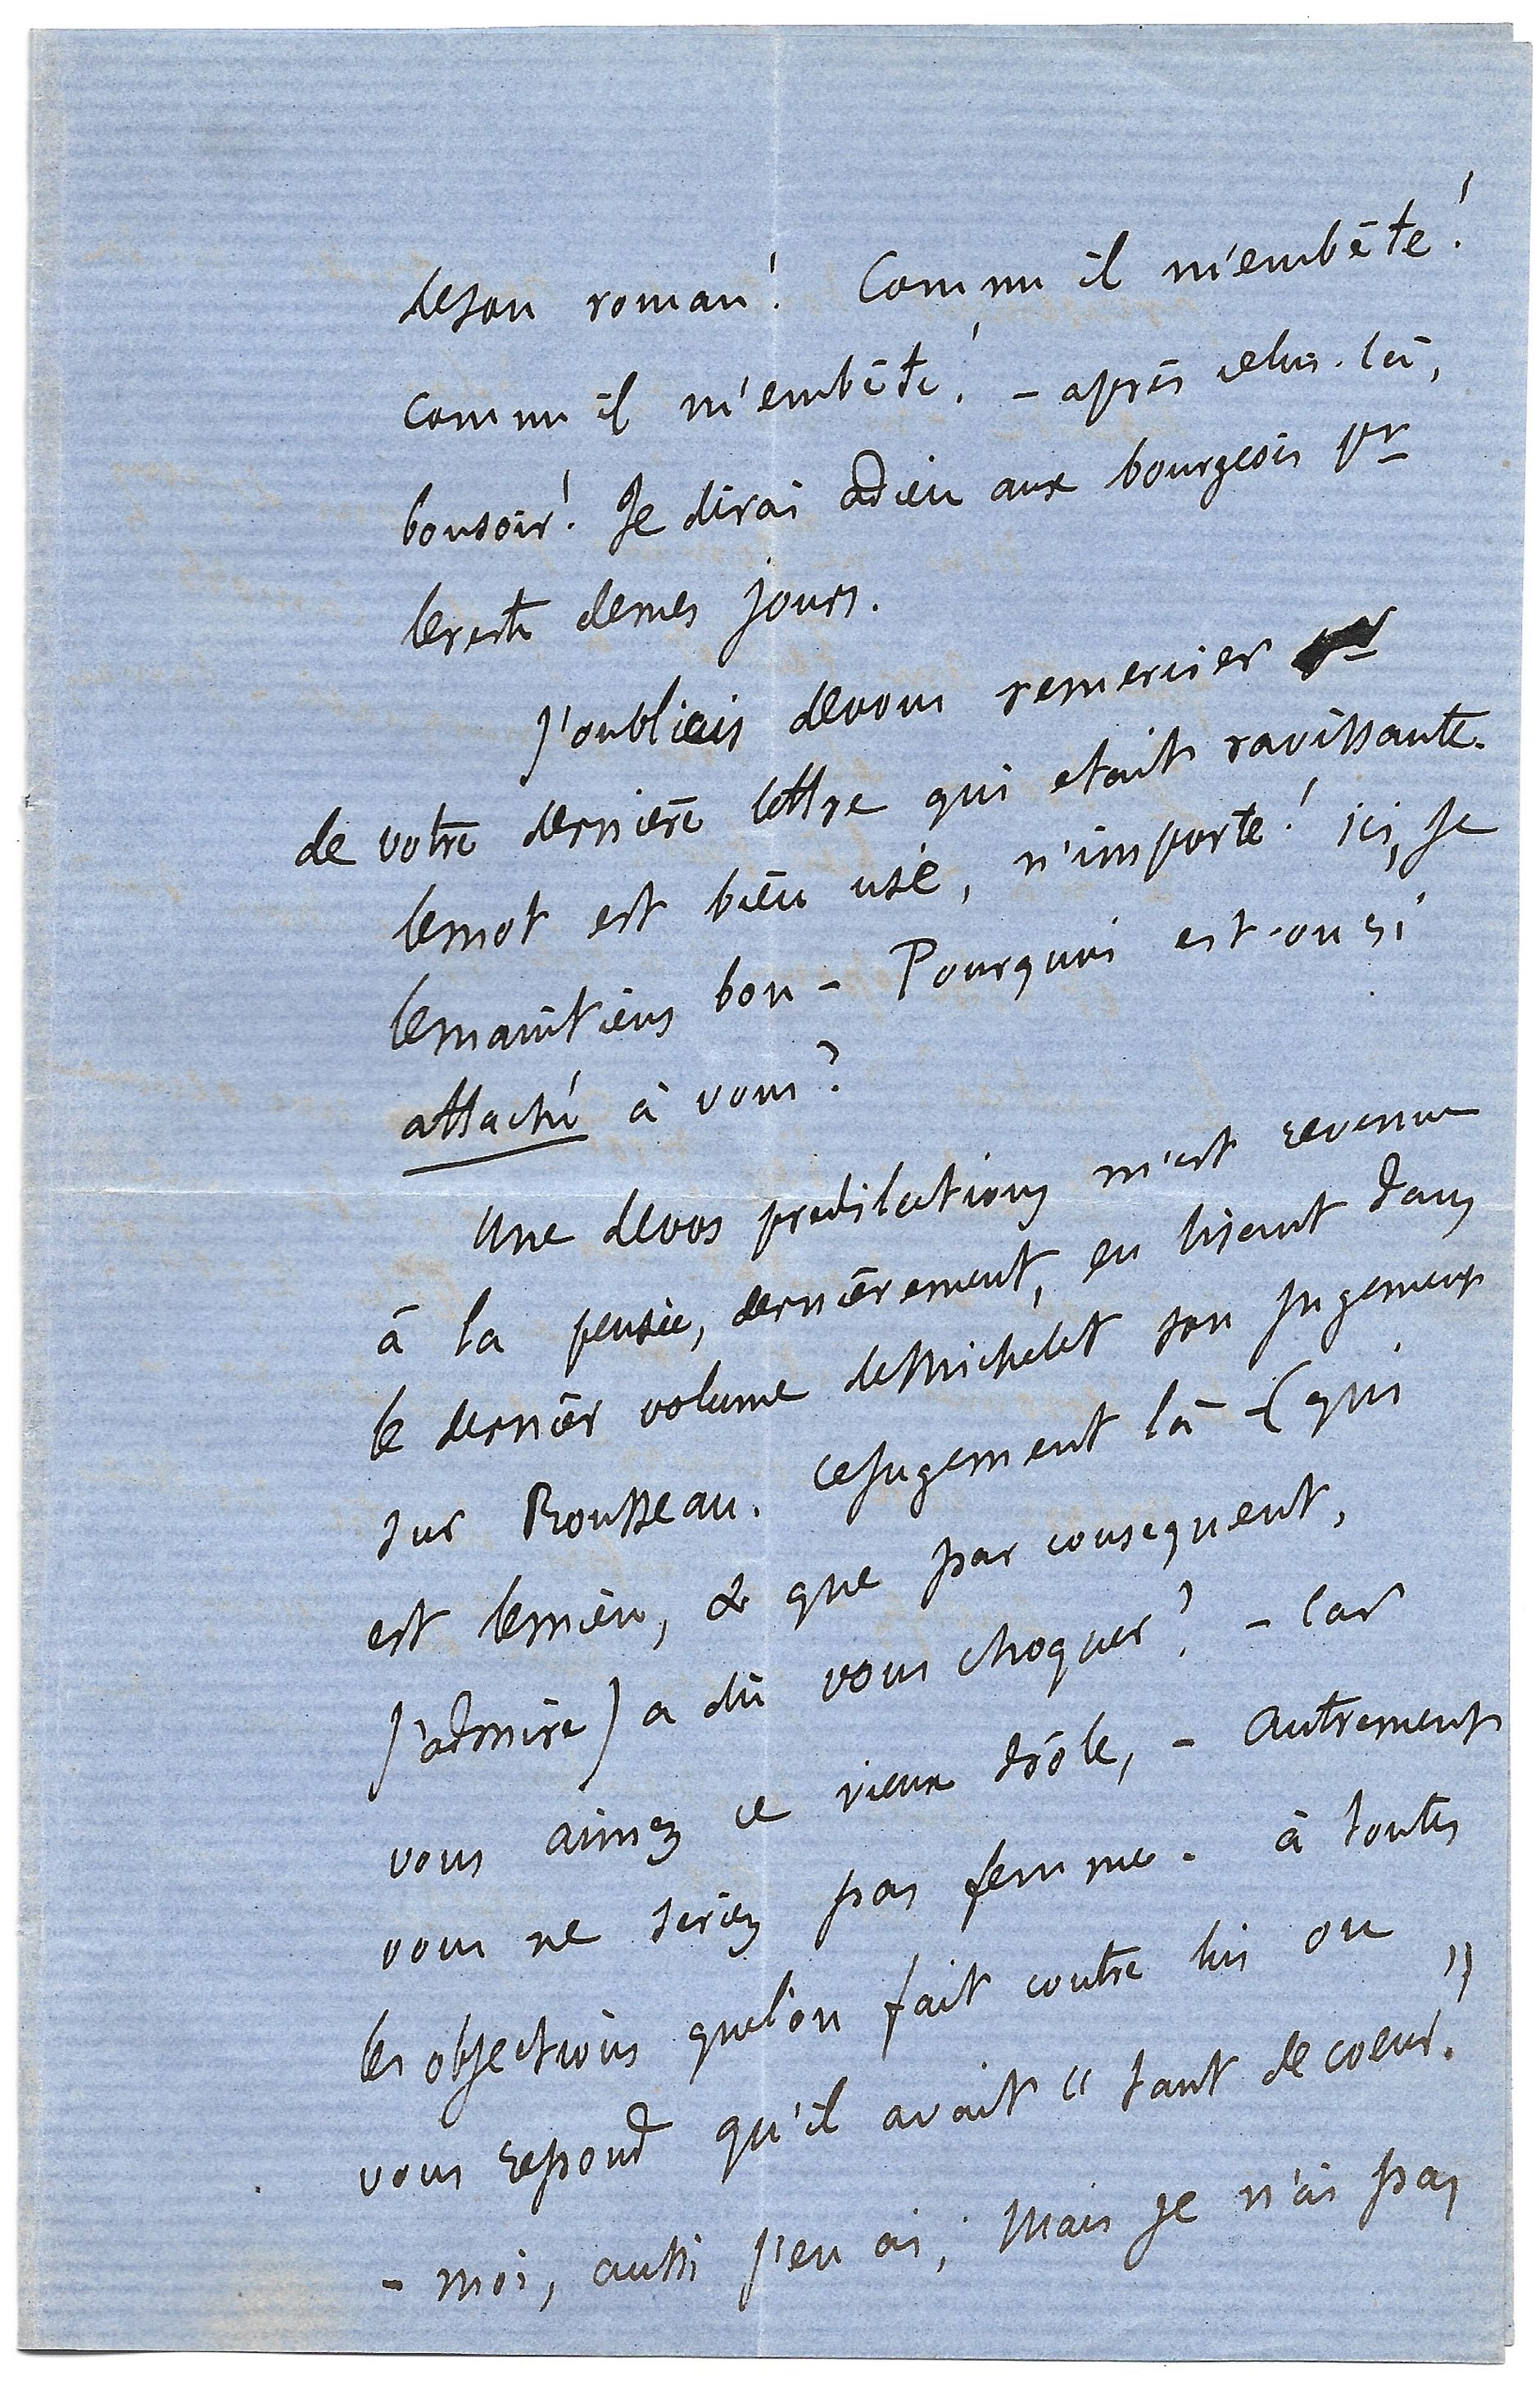 deson roman! Comme il m'embête!
comme il m'embête! – après celui-là,
bonsoir! Je dirai adieu aux bourgeois pr
lereste demes jours.
J'oubliais devous remercier
de votre dernière lettre qui etait ravissante.
lemot est bien usé, n'importe! ici, je
lemaintiens bon – Pourquoi est-on si
attaché à vous?
Une devos predilections m'est revenue
à la pensée, dernièrement, en lisant dans
le dernier volume deMichelet son jugement
sur Rousseau. cejugement là – (qui
est lemien, & que par consequent,
j'admire) a dû vous choquer? – Car
vous aimez ce vieux drôle, – autrement
vous ne seriez pas femme. à toutes
les objections quel'on fait contre lui on
vous repond qu'il avait " tant decoeur. "
– moi, aussi j'en ai, Mais je n'ai pas